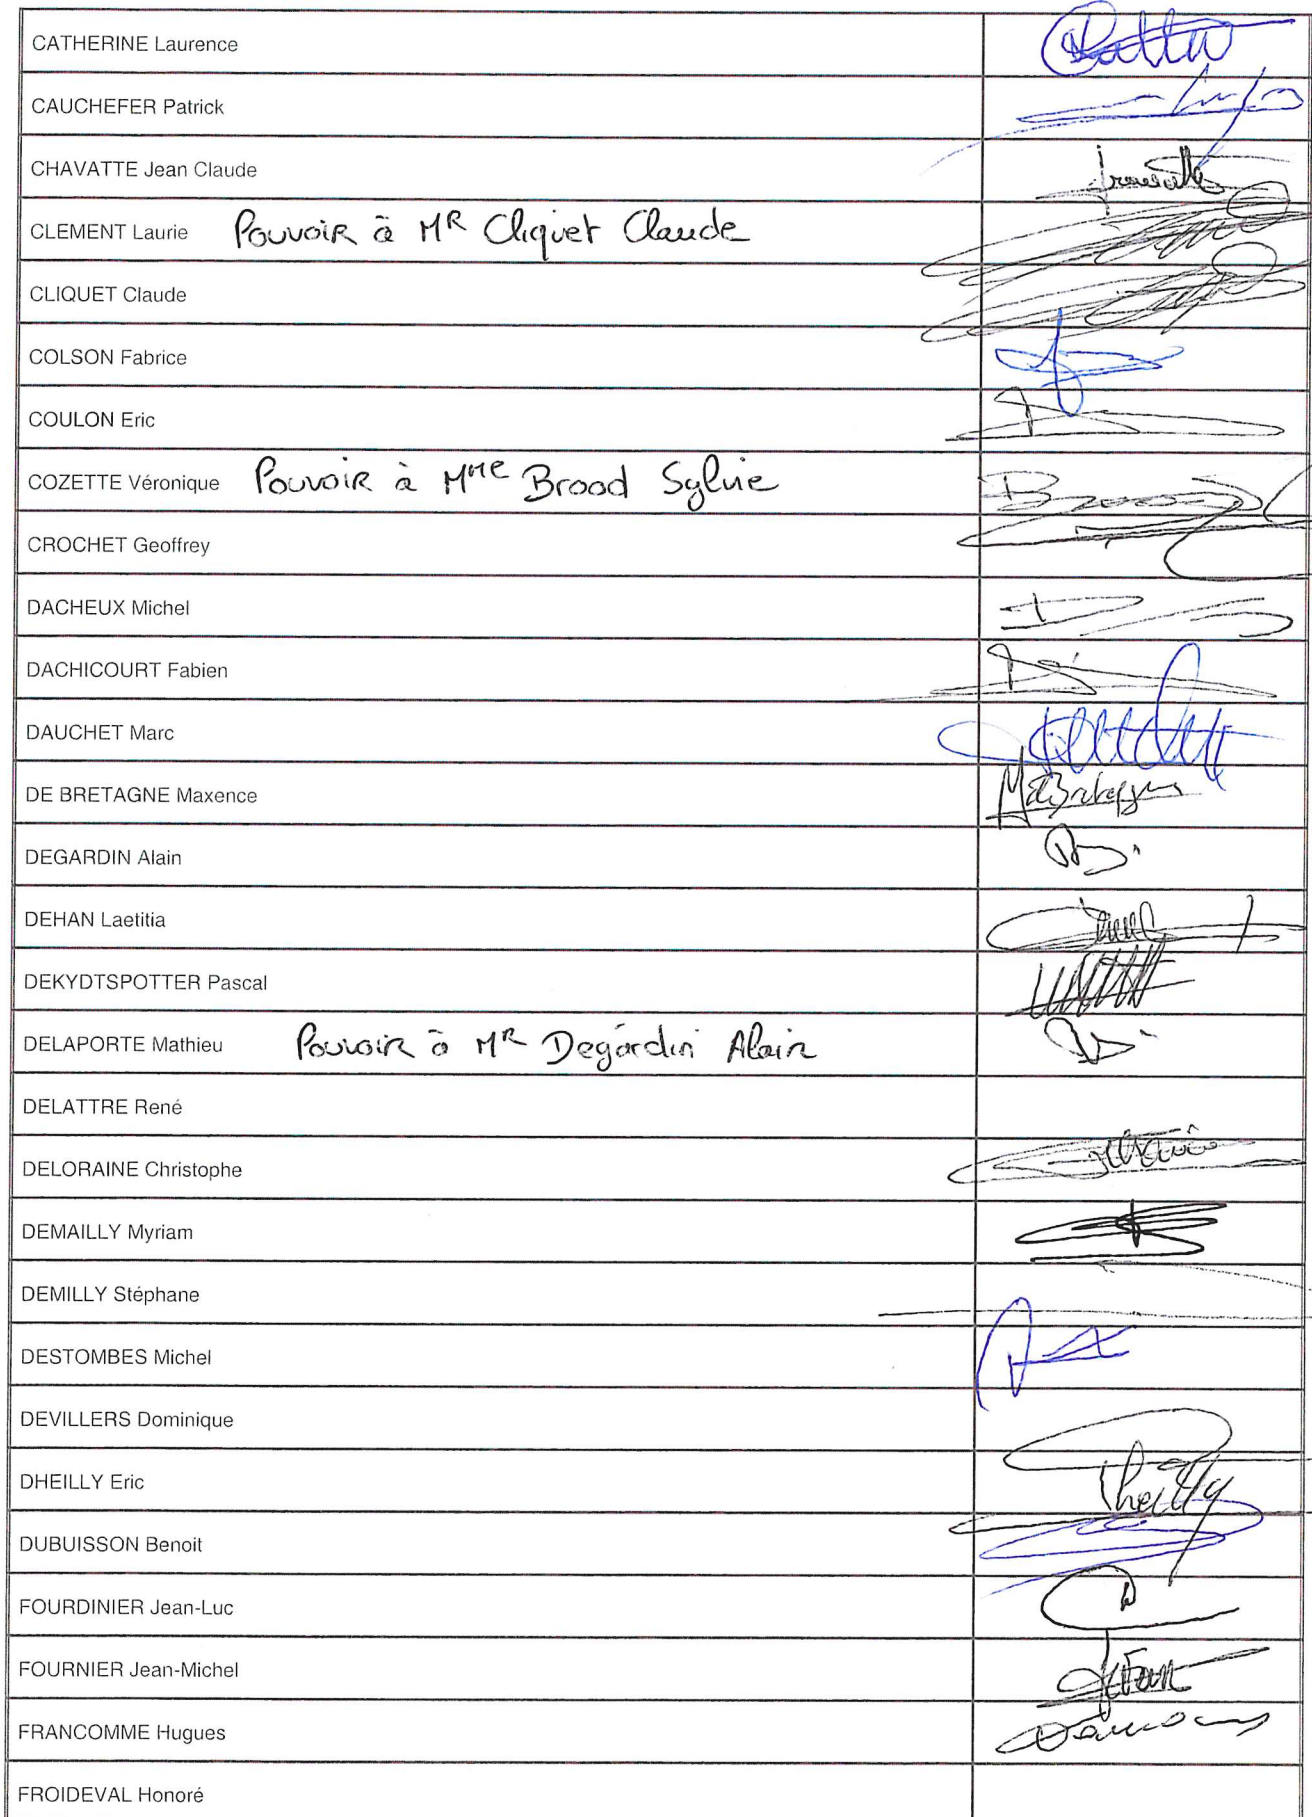 CATHERINE Laurence
CAUCHEFER Patrick
CHAVATTE Jean Claude
CLEMENT Laurie Pouvoir à MR Cliquet Claude
CLIQUET Claude
COLSON Fabrice
COULON Eric
COZETTE Véronique Pouvoir à MME Brood Sylvie
CROCHET Geoffrey
DACHEUX Michel
DACHICOURT Fabien
DAUCHET Marc
DE BRETAGNE Maxence
DEGARDIN Alain
DEHAN Laetitia
DEKYDTSPOTTER Pascal
DELAPORTE Mathieu Pouvoir à MR Degardin Alain
DELATTRE René
DELORAINE Christophe
DEMAILLY Myriam
DEMILLY Stéphane
DESTOMBES Michel
DEVILLERS Dominique
DHEILLY Eric
DUBUISSON Benoit
FOURDINIER Jean-Luc
FOURNIER Jean-Michel
FRANCOMME Hugues
FROIDEVAL Honoré